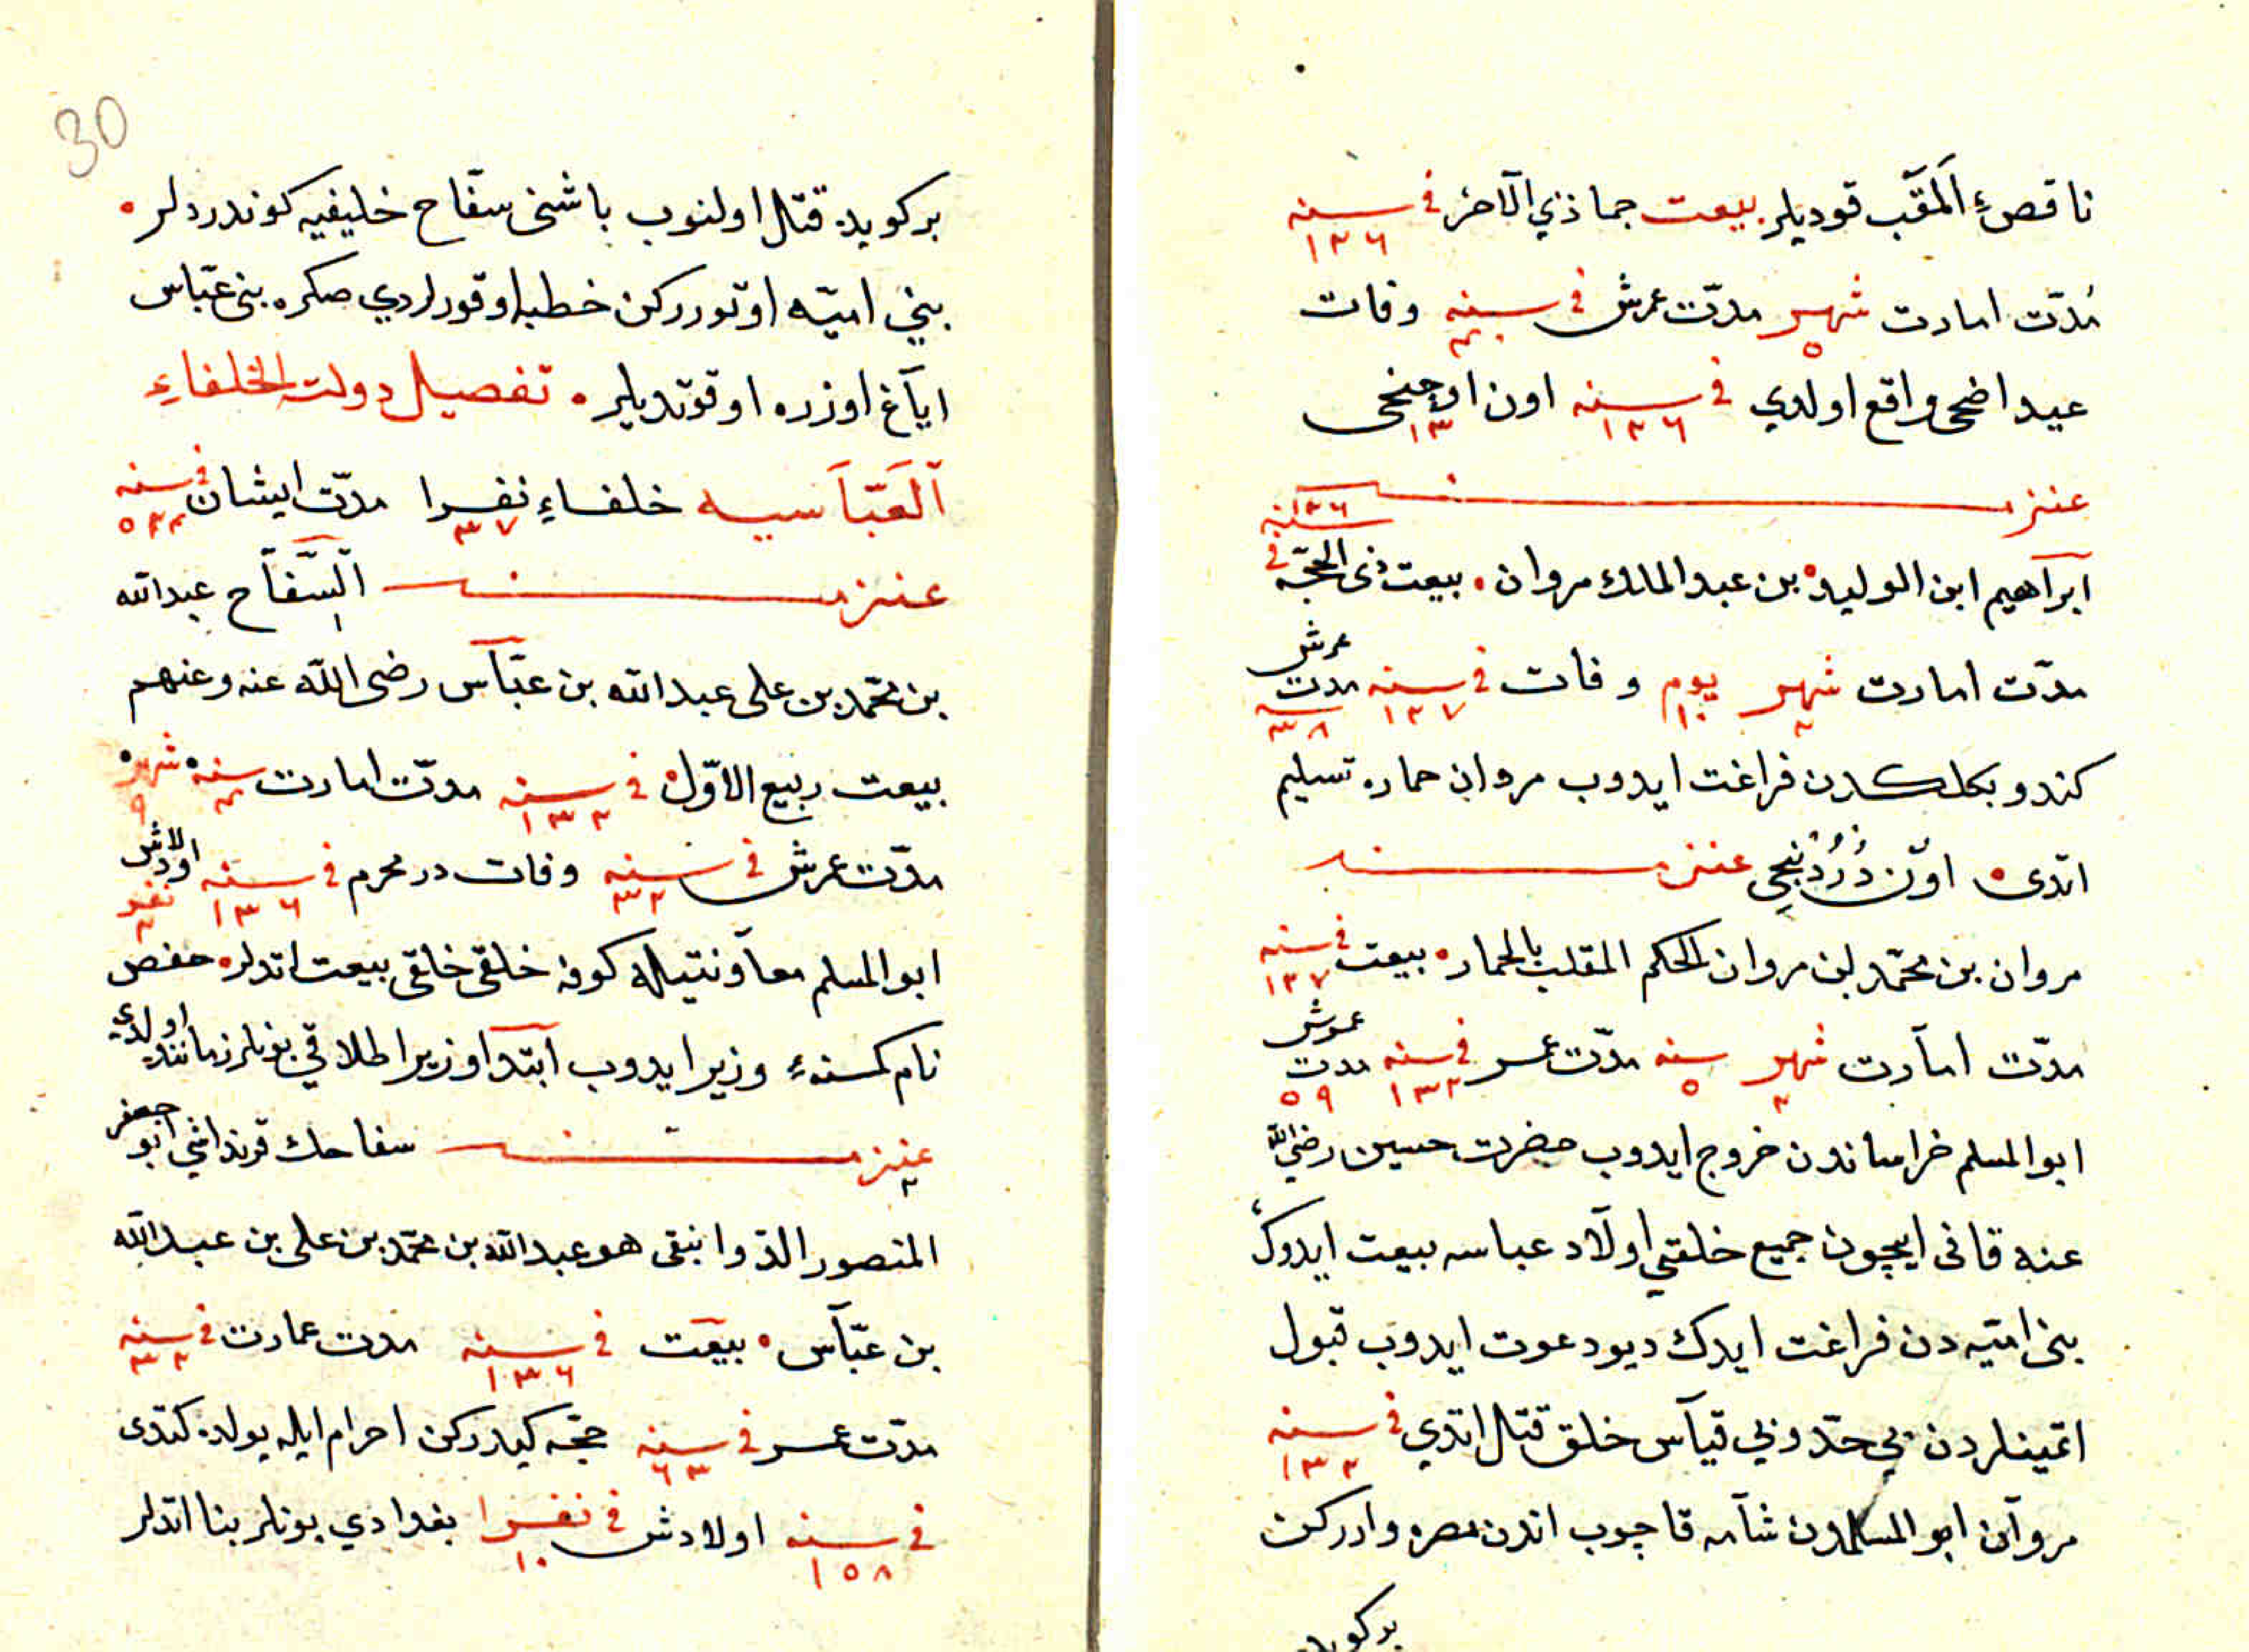 ناقصئ المقّب قوديلر بيعت جماذي الآخر في سنه ١٣٦
مُدّت امارت شهر ٥ مدّت عمرش في سنه ٤٠ وفات
عيد اضحى واقع اولدي في سنه ١٣٦ اون اوچنجى ١٣
ابراهيم ابن الوليد بن عبد المالك مروان بيعت ذى الحجّه في سنه ١٣٦
مدّت امارت شهر ٢ يوم ١٠ وفات في سنه ١٣٧ مدت عمرش ٣٨
كندو بكلكدن فراغت ايدوب مروان حماره تسليم
اتدى اوّن دُرْدُنْجِي
مروان بن محمّد بن مروان الحكم المقلب بالحمار بيعت في سنه ١٣٧
مدّت امآرت شهر ٢ سنه ٥ مدّت عمر في سنه ١٣٢ مدت عموش ٥٩
ابو المسلم خراساندن خروج ايدوب حضرت حسين رضي الله
عنه قانى ايچون جميع خلقي اولآد عباسه بيعت ايدوك
بنى اميّه دن فراغت ايدك ديو دعوت ايدوب قبول
اتمينلردن بي حدّ وبي قيآس خلق قتال اتدي في سنه ١٣٢
مروآن ابو المسلمدن شآمه قاچوب اندن مصره واررکن
بر کويده
30
بر كويده قتال اولنوب باشنى سفّاح خليفيه كوندرديلر
بيني اميّه اوتورركن خطبه اوقورلردي صكره بنى عبّاس
اياّغ اوزره اوقوتديلر تفصيل دولت الخلفاءِ
اَلْعَبّاَسيه خلفاءِ نفرا ٣٧ مدّت ايشان في سنه ٥٢٣
السّفّاح ١ عبدالله
بن محمّد بن على عبدالله بن عبّآس رضى الله عنه وعنهم
بيعت ربيع الاوّل في سنه ١٣٢ مدّت امارت سنه ٤ شهر ٩
مدّت عمرش في سنه ٣٢ وفات در محرم في سنه ١٣٦ اولادش نفر ٢
ابو المسلم معآونتيله كوفه خلقى خلقى بيعت اتديلر حفص
نام كمسنهء وزير ايدوب ابتدآ وزير اطلاقي بونلر زماننده اولدي
٢ سفاحك قرنداشي ابو جعفر
المنصور الدّوانبقى هو عبدالله بن محمّد بن على بن عبدالله
بن عبّآس بيعت في سنه ١٣٦ مدت عمارت في سنه ٢٢
مدّت عمر في سنه ٦٣ حجّه كيدركن احرام ايله يولده كتدى
في سنه ١٥٨ اولادش في نفرا ١٠ بغدادي بونلر بنا اتديلر